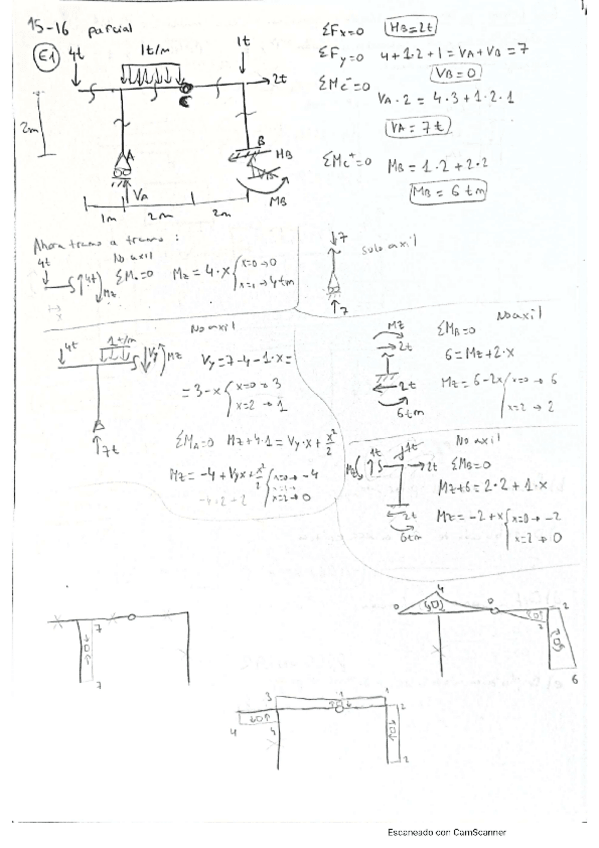 15-16 parcial
E1
4t
1t/m
1t
2t
C
2m
A
B
HB
VB
VA
MB
1m 2m 2m
ΣFx=0 HB=2t
ΣFy=0 4+1·2+1=VA+VB=7
VB=0
ΣMc⁻=0
VA·2=4·3+1·2·1
VA=7t
ΣMc⁺=0 MB=1·2+2·2
MB=6tm
Ahora tramo a tramo:
No axil
4t
4t
Mz
ΣM.=0 Mz=4·x
x=0→0
x=1→4tm
7
solo axil
7
No axil
4t
1t/m
Vy
Mz
7t
Vy=7-4-1·x=
=3-x
x=0→3
x=2→1
ΣMA=0 Mz+4·1=Vy·x+x²/2
Mz=-4+Vyx+x²/2
x=0→-4
x=2→0
No axil
Mz
2t
2t
6tm
ΣMB=0
6=Mz+2·x
Mz=6-2x
x=0→6
x=2→2
No axil
Mz
1t
1t
2t
2t
6tm
ΣMB=0
Mz+6=2·2+1·x
Mz=-2+x
x=0→-2
x=2→0
7
7
0
4
0
2
2
6
3
1
1
4
4
2
2
Escaneado con CamScanner